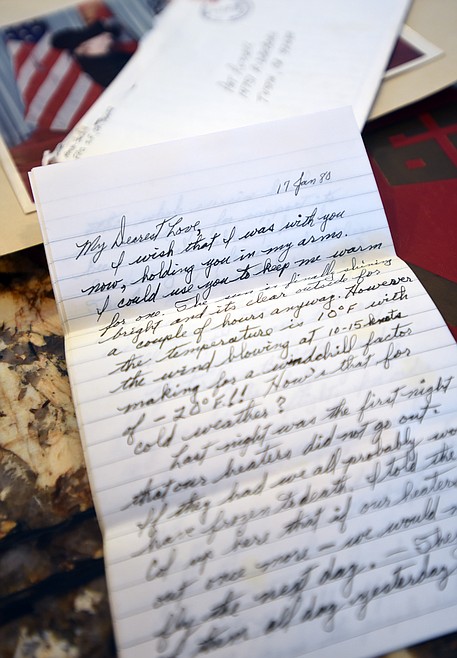 17 Jan 80
My Dearest Love,
I wish that I was with you
now, holding you in my arms.
I could use you to keep me warm
for one. The sun is finally shining
bright and its clear outside for
a couple of hours anyway. However
the temperature is 10°F with
the wind blowing at 10-15 knots
making for a windchill factor
of -20°F!! How's that for
cold weather?
Last night was the first night
that our heaters did not go out.
If they had we all probably wo
have frozen to death. I told the
CO up here that if our heaters
out once more - we would n
fly the next day. - The
them all day yesterday